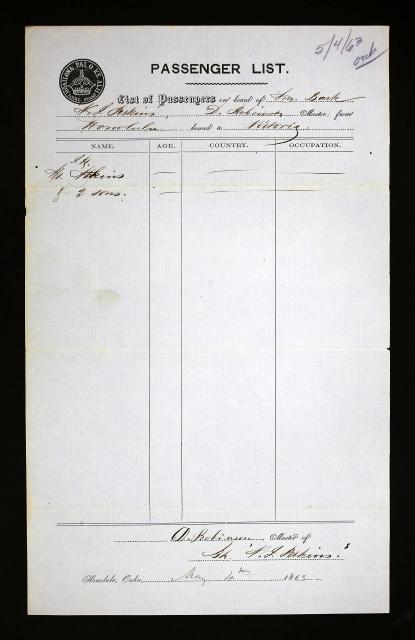 5/4/63
out
PASSENGER LIST.
List of Passengers on board of Am. Bark
Perkins, D. Robinson, Master; from
Honolulu bound to Victoria.
NAME. AGE. COUNTRY. OCCUPATION.
— —
& 2 sons. — —
D. Robinson, Master of
Perkins."
Honolulu, Oahu, May 4th 1863